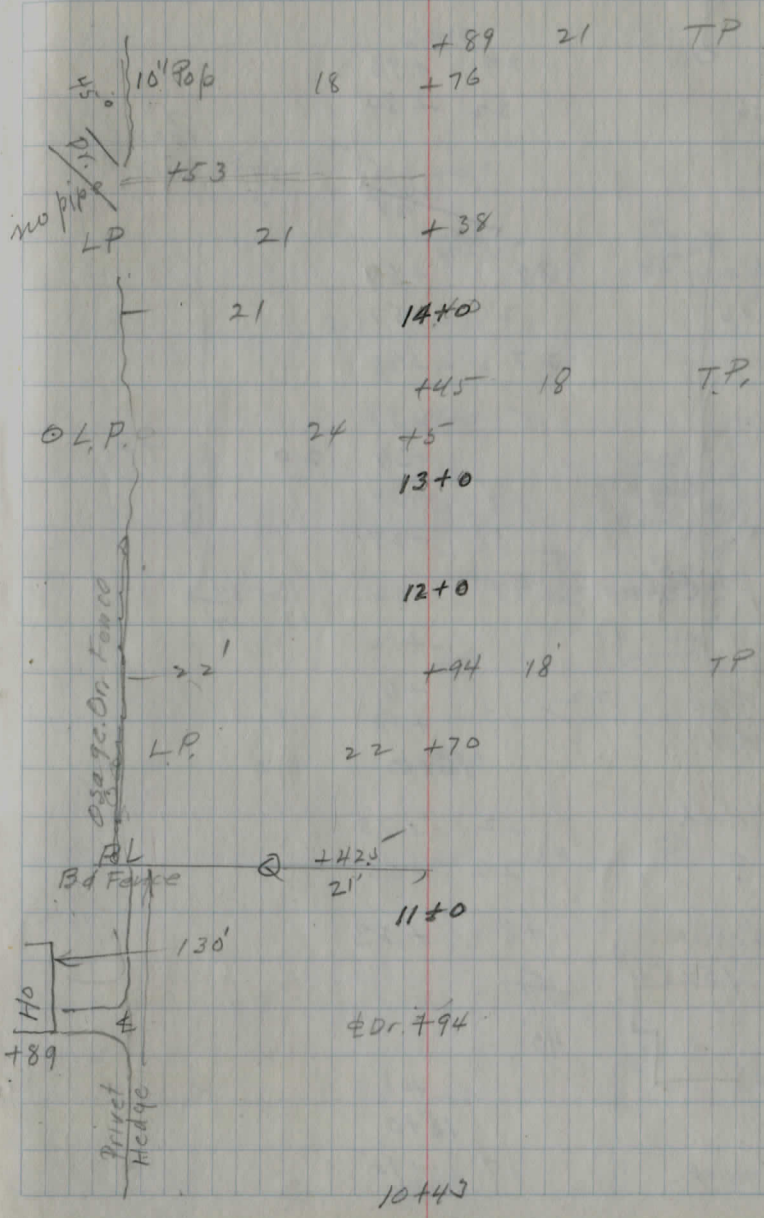 +89 21 TP
10" Pop 18 +76
+53
no pipe
LP 21 +38
21 14+0
+45 18 T.P.
L.P. 24 +5
13+0
12+0
Osage Or. Fence
22' +94 18' TP
L.P. 22 +70
PL +42.5
Bd Fence 21'
11+0
130'
Ho
℄ ℄ Dr. +94
+89
Privet
Hedge